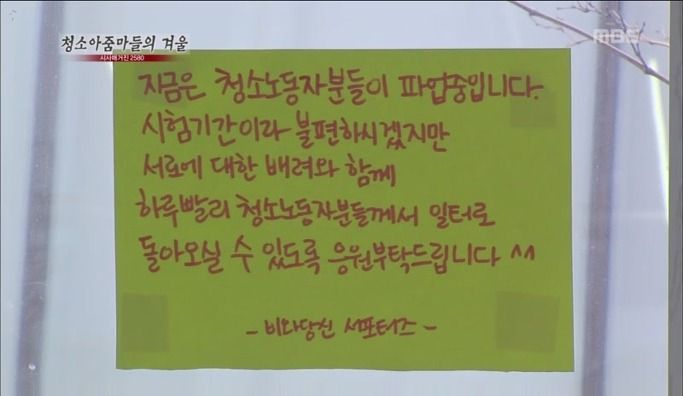 청소아줌마들의 겨울
시사매거진 2580
MBC
지금은 청소노동자분들이 파업중입니다.
시험기간이라 불편하시겠지만
서로에 대한 배려와 함께
하루빨리 청소노동자분들께서 일터로
돌아오실 수 있도록 응원부탁드립니다 ^^
- 비와당신 서포터즈 -